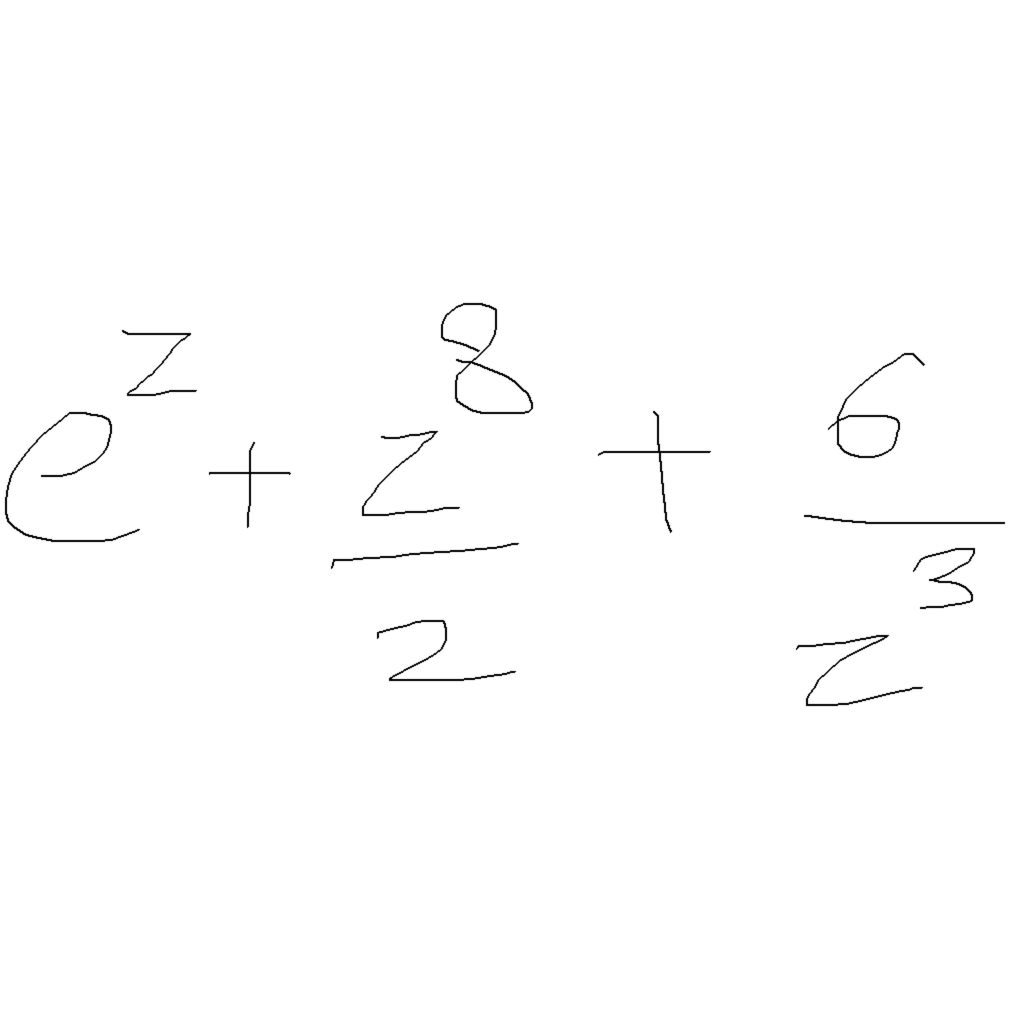 e^z + z^8/2 + 6/z^3